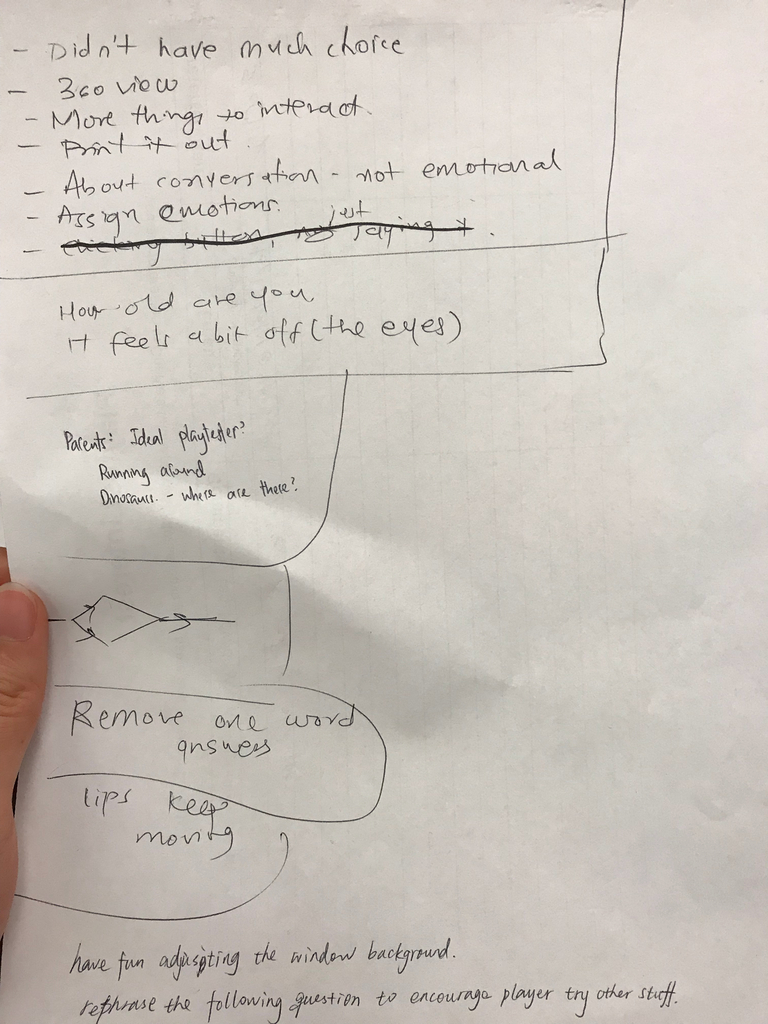 - Didn't have much choice
- 360 view
- More things to interact.
- Print it out.
- About conversation - not emotional
- Assign emotions.
just
- clicking button, saying it.
How old are you
It feels a bit off (the eyes)
Parents: Ideal playtester?
Running around
- where are there?
Remove one word
answers
lips keep
moving
have fun adjusting the window background.
rephrase the following question to encourage player try other stuff.